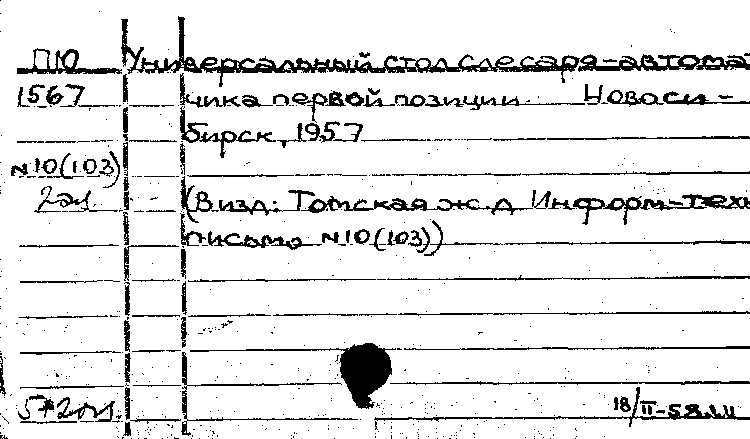 ПЮ Универсальный стол слесаря-автомат
1567 чика первой позиции Новоси-
бирск, 1957
N10(103)
2эл. (В изд: Томская ж.д Информ-техн
письмо N10(103))
18/II-58.